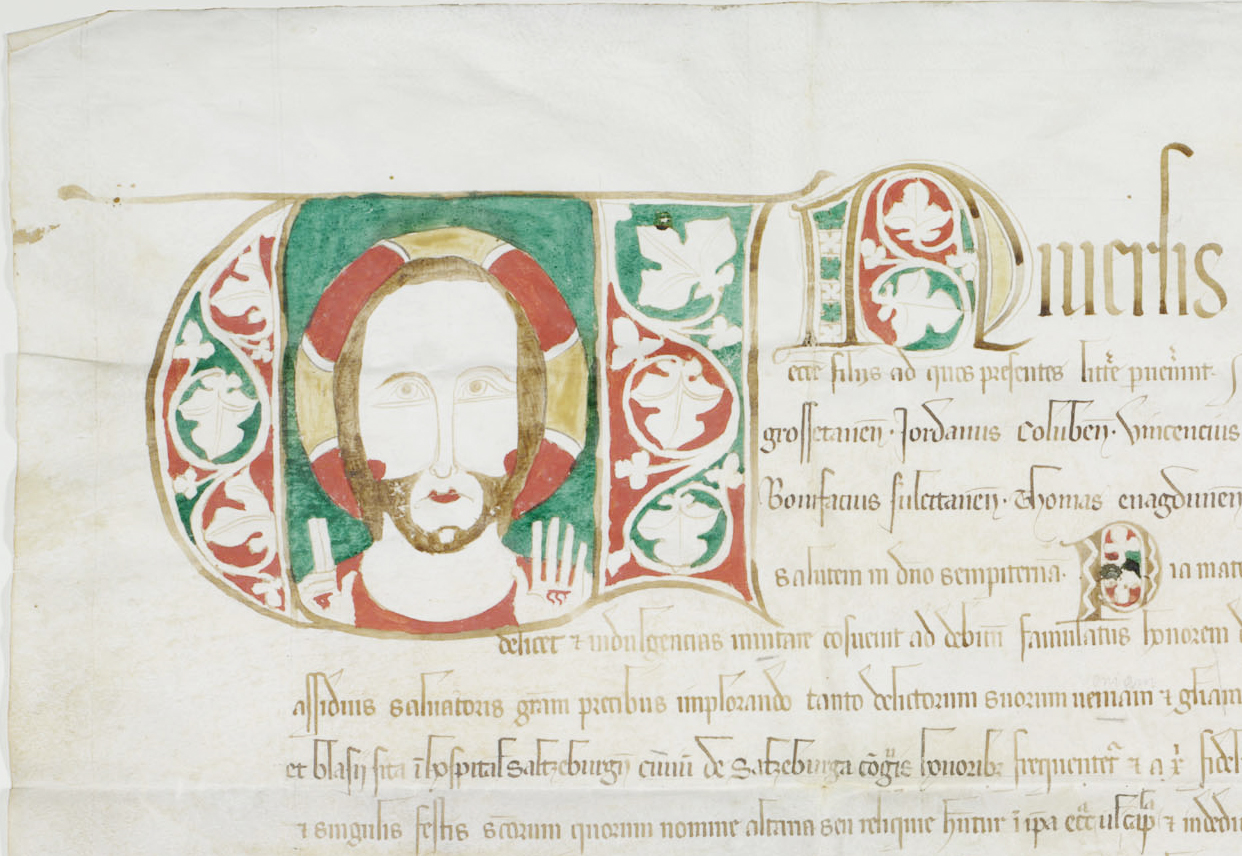 UNiversis
eccꝉe filijs ad quos presentes litte puenint
grossetaneñ · Jordanus Columbeñ · Vincencius
Bonifacius sulcitaneñ · Thomas enagduneñ
salutem in dño sempiterna · Pia mat
delicet ⁊ indulgencias inuitare cosueuit ad debitũ famulatus honorem
assiduis saluatoris grãm precibus implorando tanto delictorum suorum ueniam ⁊ gliam
et blasij sita ĩ hospitali saltzeburgñ ciuiũ de Saltzeburga cõgͥs honoribꝫ frequentet̃ ⁊ a xͥ fidel
⁊ singulis festis sc̃orum quorum nomine altaria seu reliquie hñtur ĩ ip̃a